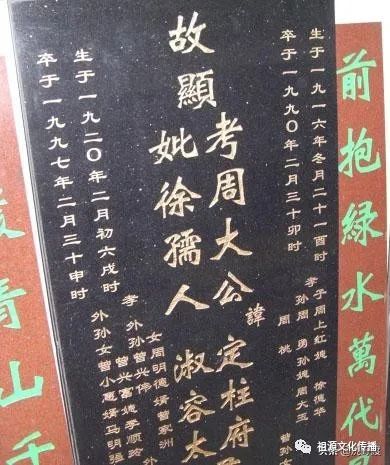 前抱綠水萬代
生于一九一六年冬月二十一酉时
卒于一九九〇年二月三十卯时
孝子周上红媳徐德华
孙周勇孙媳周大玉
周桃
故顯考周大公諱定柱府
妣徐孺人淑容太
孝女周明德婿曾家洲
外孙曾兴伟
曾兴富媳李顺
外孙女曾小惠婿马明强
生于一九二〇年二月初六戌时
卒于一九九七年二月三十申时
青山千
祖源文化传播